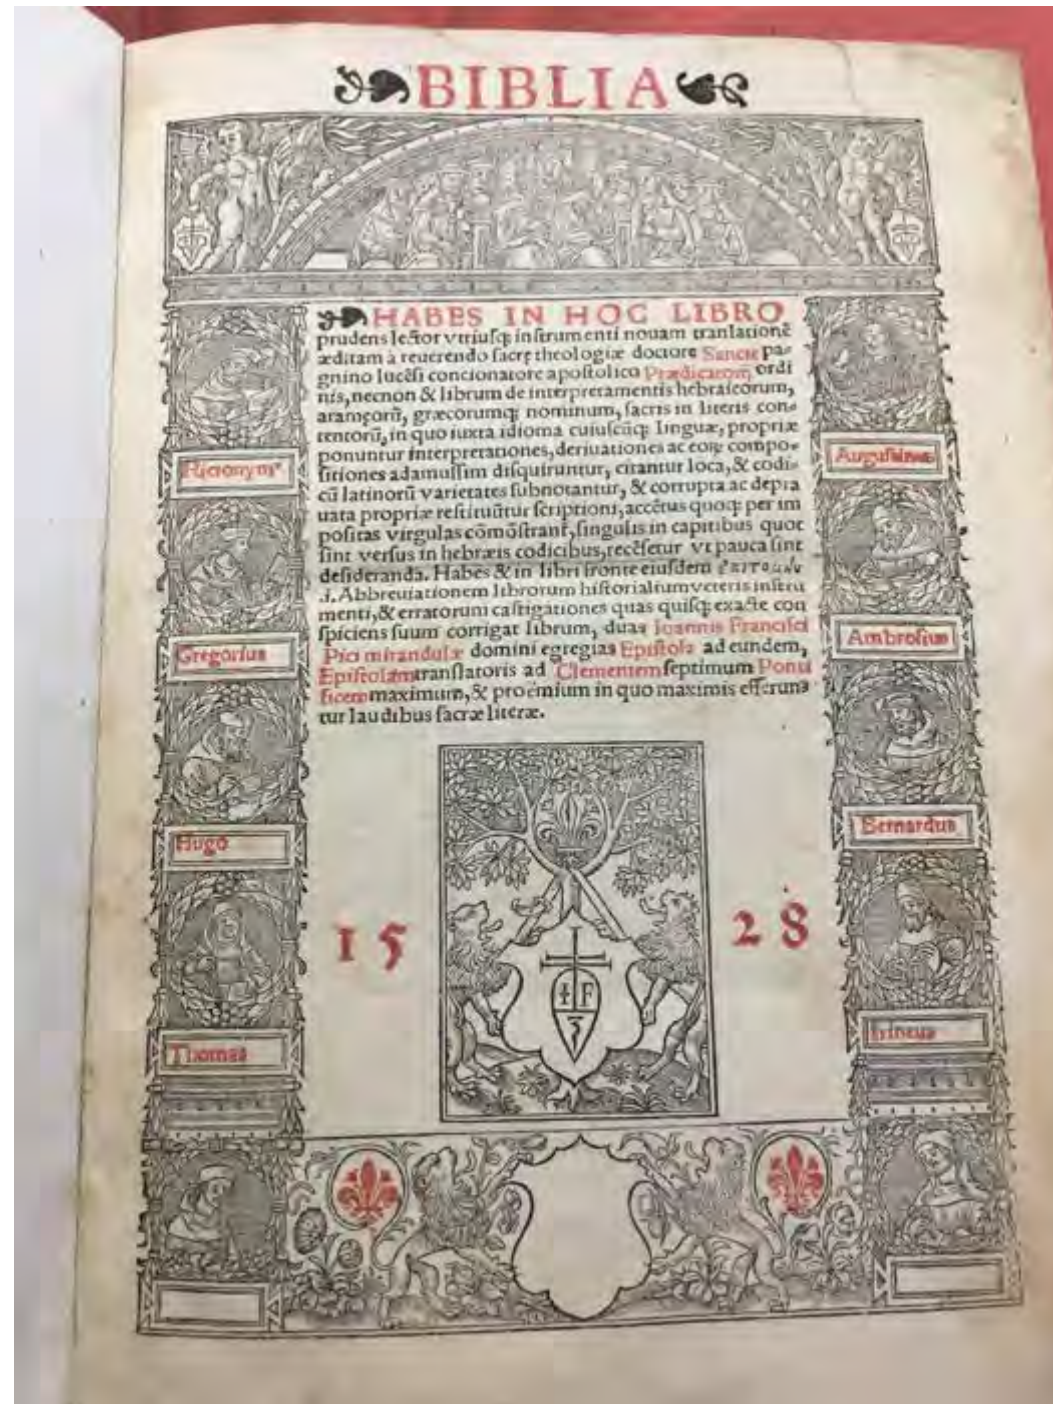 BIBLIA
HABES IN HOC LIBRO
prudens lector vtriusq; instrumenti nouam tranlationē
æditam à reuerendo sacrę theologiæ doctore Sancte pa-
gnino lucēsi concionatore apostolico Prædicatorū ordi
nis, necnon & librum de interpretamentis hebraicorum,
aramęorū, græcorumq; nominum, sacris in literis con-
tentorū, in quo iuxta idioma cuiuscūq; linguæ, propriæ
ponuntur interpretationes, deriuationes ac eorū compo-
sitiones adamussim disquiruntur, citantur loca, & codi-
cū latinorū varietates subnotantur, & corrupta ac depra
uata propriæ restituūtur scriptioni, accētus quoq; per im
positas virgulas cōmōstrant, singulis in capitibus quot
sint versus in hebræis codicibus, recēsetur vt pauca sint
desideranda. Habes & in libri fronte eiusdem ἐπιτομὴν
.i. Abbreuiationem librorum historialium veteris instru
menti, & erratorum castigationes quas quisq; exacte con
spiciens suum corrigat librum, duas Ioannis Francisci
Pici mirandulæ domini egregias Epistola ad eundem,
Epistolam translatoris ad Clementem septimum Ponti
ficem maximum, & proemium in quo maximis efferun-
tur laudibus sacræ literæ.
Hieronym⁹
Augustinus
Gregorius
Ambrosius
Hugo
Bernardus
Thomas
1528
F